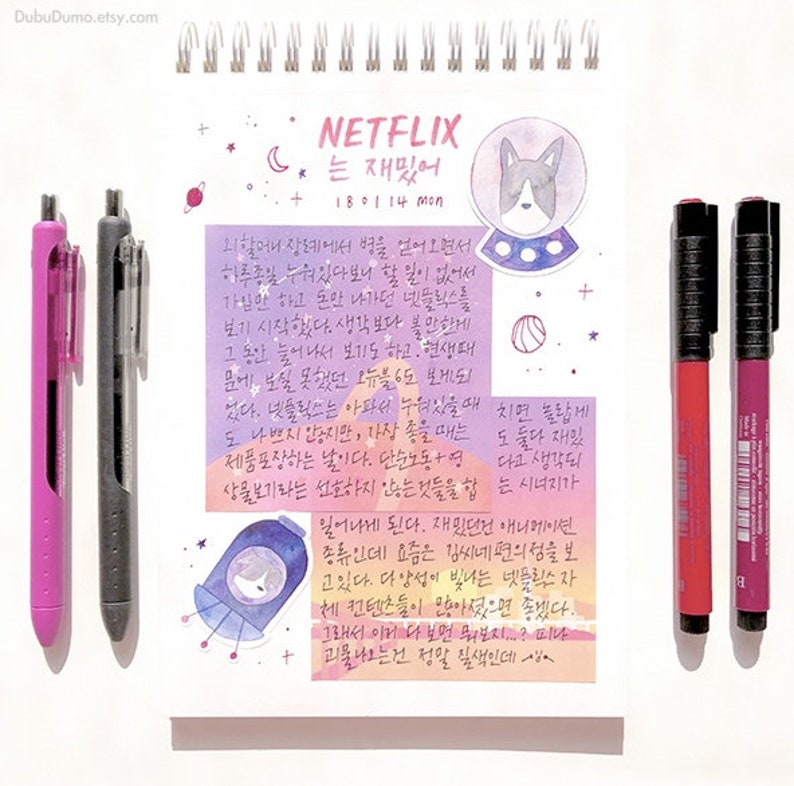 DubuDumo.etsy.com
NETFLIX
는 재밌어
180114 mon
외할머니 장례에서 병을 얻어오면서
하루종일 누워있다보니 할 일이 없어서
가입만 하고 돈만 나가던 넷플릭스를
보기 시작했다. 생각보다 볼만한게
그 동안 늘어나서 보기도 하고. 현생때
문에 보질 못했던 오뉴블6도 보게되
었다. 넷플릭스는 아파서 누워있을때
도 나쁘지 않지만, 가장 좋을 때는
제품포장하는 날이다. 단순노동+영
상물보기라는 선호하지 않는것들을 합
치면 놀랍게
도 둘다 재밌
다고 생각되
는 시너지가
일어나게 된다. 재밌던건 애니메이션
종류인데 요즘은 김씨네편의점을 보
고있다. 다양성이 빛나는 넷플릭스 자
체 컨텐츠들이 많아졌으면 좋겠다.
그래서 이거 다 보면 뭐보지...? 피나
괴물나오는건 정말 질색인데
B